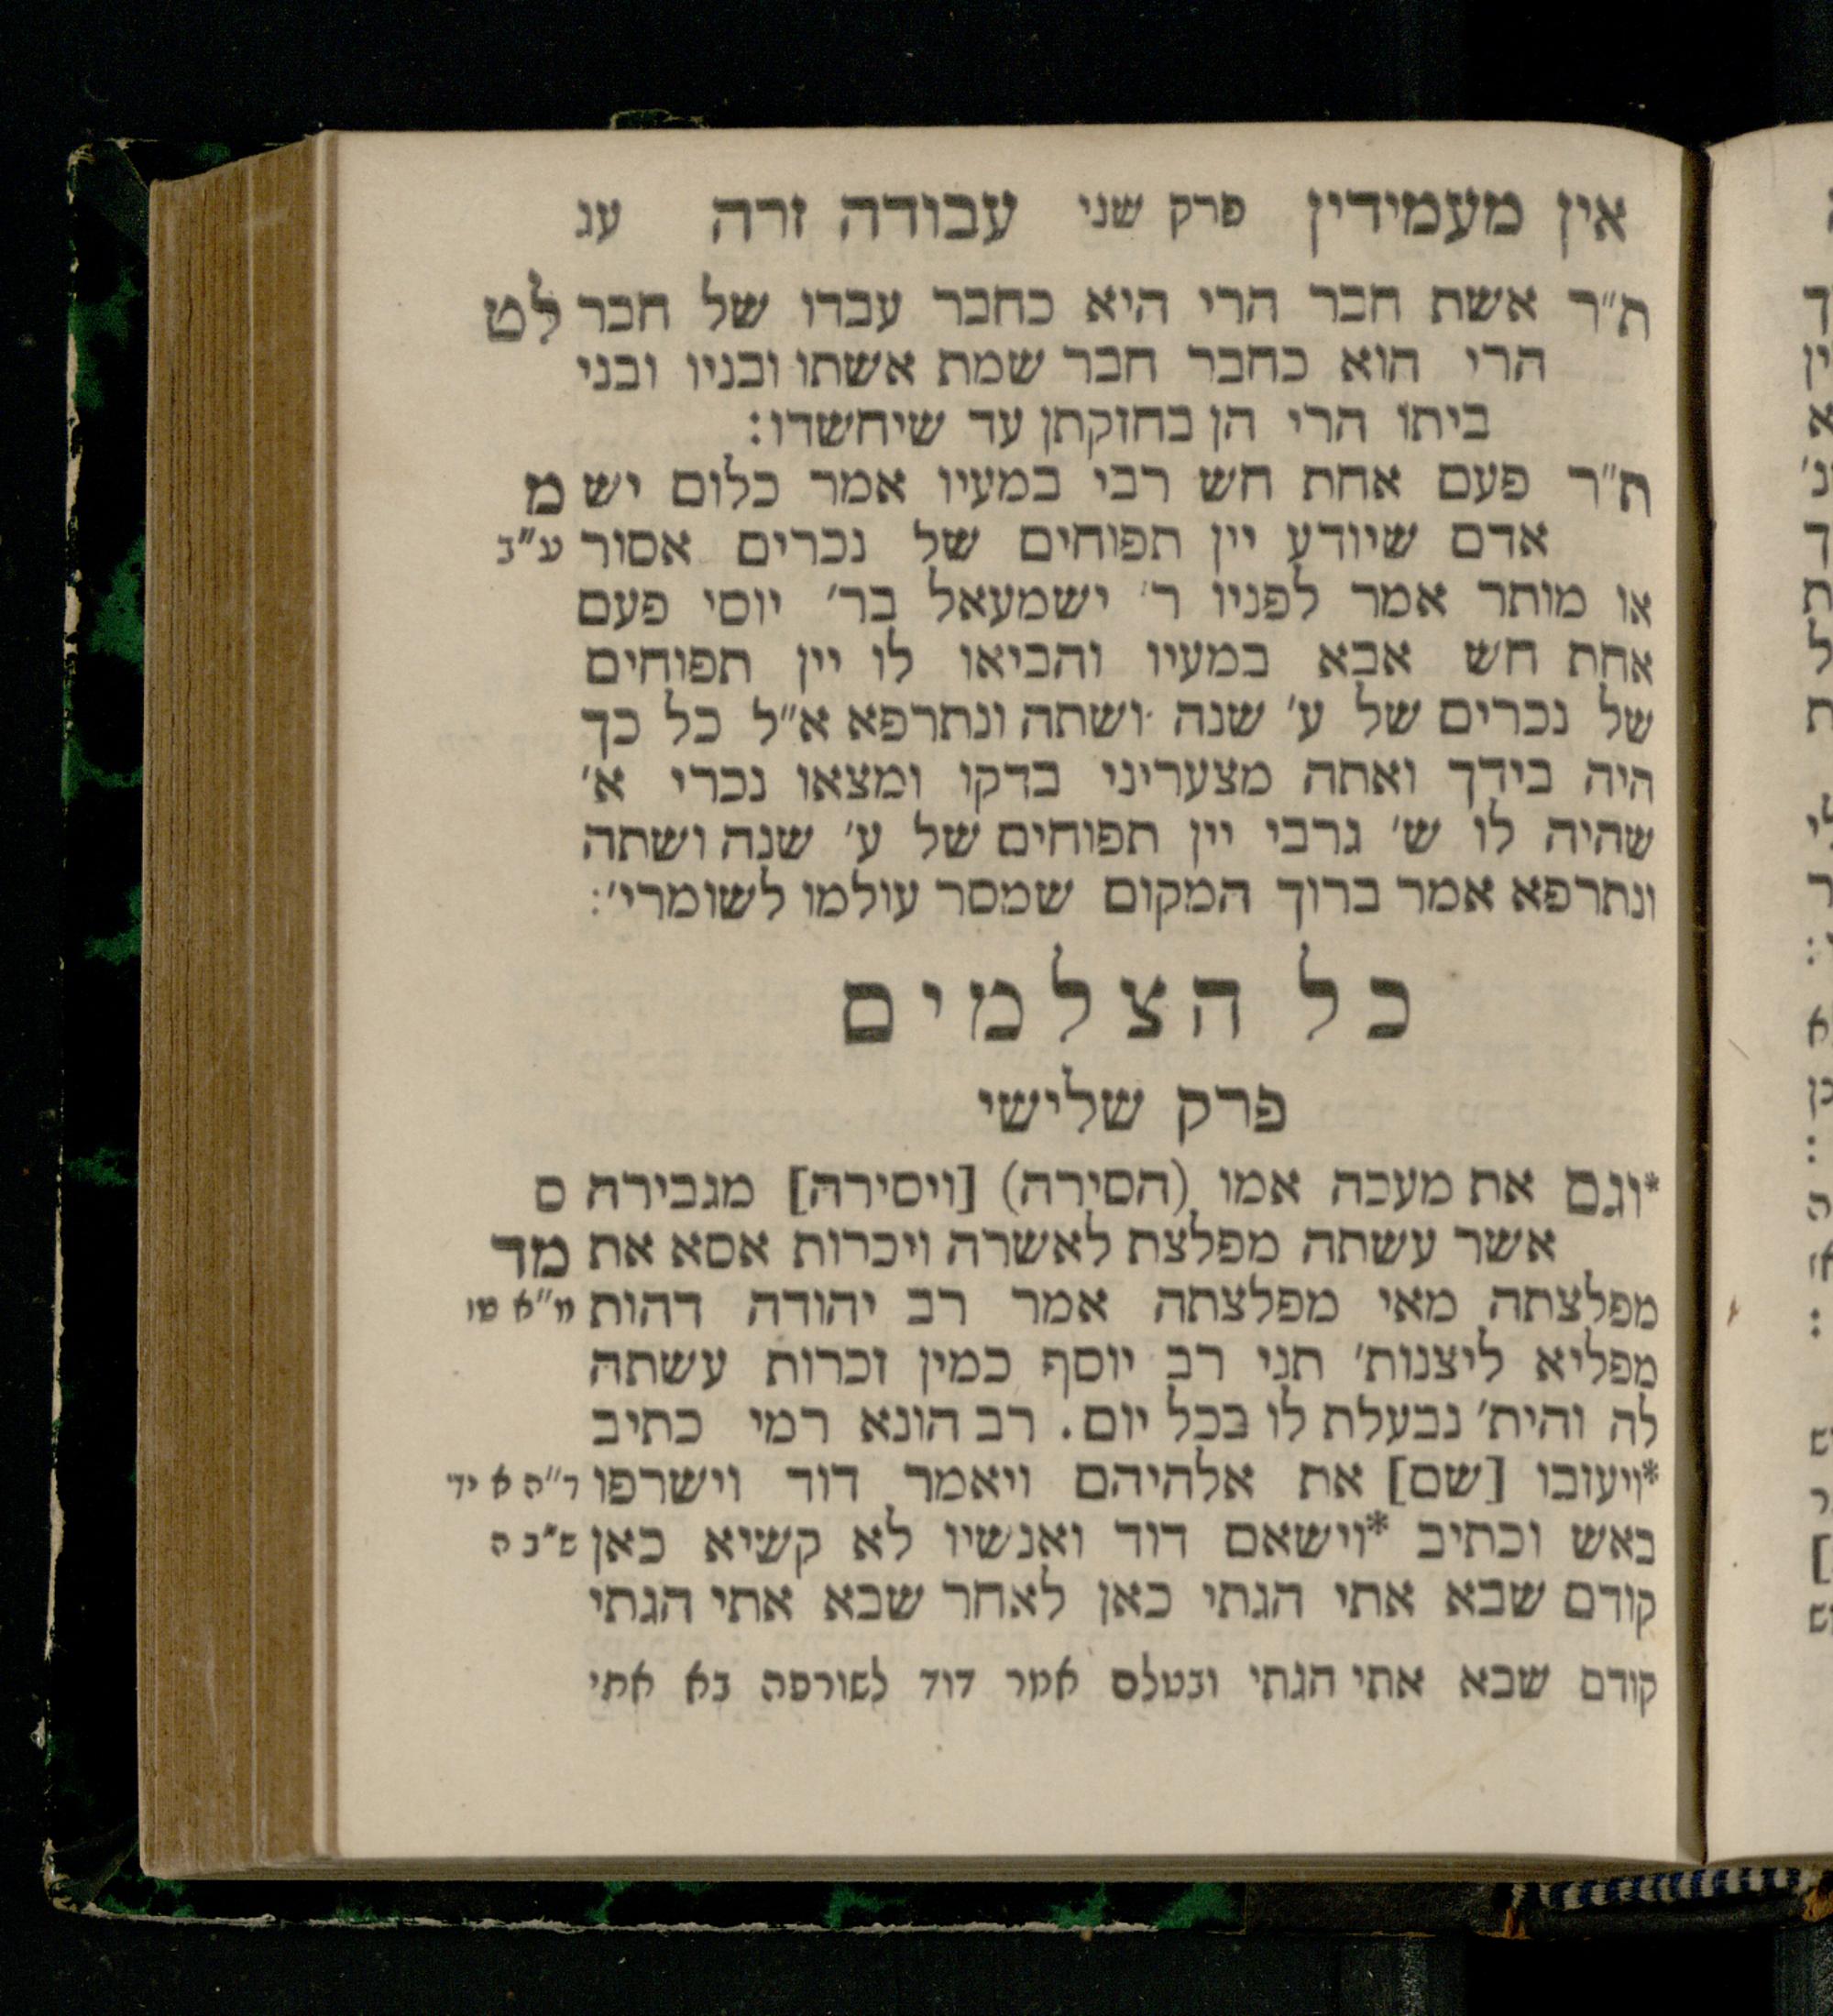 אין מעמידין פרק שני עבודה זרה עג
ת״ר אשת חבר הרי היא כחבר עבדו של חבר לט
הרי הוא כחבר חבר שמת אשתו ובניו ובני
ביתו הרי הן בחזקתן עד שיחשדו:
ת״ר פעם אחת חש רבי במעיו אמר כלום יש מ
אדם שיודע יין תפוחים של נכרים אסור ע״ב
או מותר אמר לפניו ר׳ ישמעאל בר׳ יוסי פעם
אחת חש אבא במעיו והביאו לו יין תפוחים
של נכרים של ע׳ שנה ושתה ונתרפא א״ל כל כך
היה בידך ואתה מצעריני בדקו ומצאו נכרי א׳
שהיה לו ש׳ גרבי יין תפוחים של ע׳ שנה ושתה
ונתרפא אמר ברוך המקום שמסר עולמו לשומרי׳:
כל הצלמים
פרק שלישי
*וגם את מעכה אמו (הסירה) [ויסירה] מגבירה ס
אשר עשתה מפלצת לאשרה ויכרות אסא את מד
מפלצתה מאי מפלצתה אמר רב יהודה דהות מ״א טו
מפליא ליצנות׳ תני רב יוסף כמין זכרות עשתה
לה והית׳ נבעלת לו בכל יום. רב הונא רמי כתיב
*ויעזבו [שם] את אלהיהם ויאמר דוד וישרפו ד״ה א יד
באש וכתיב *וישאם דוד ואנשיו לא קשיא כאן ש״ב ה
קודם שבא אתי הגתי כאן לאחר שבא אתי הגתי
קודם שבא אתי הגתי ובטלם אמר דוד לשורפה בא אתי